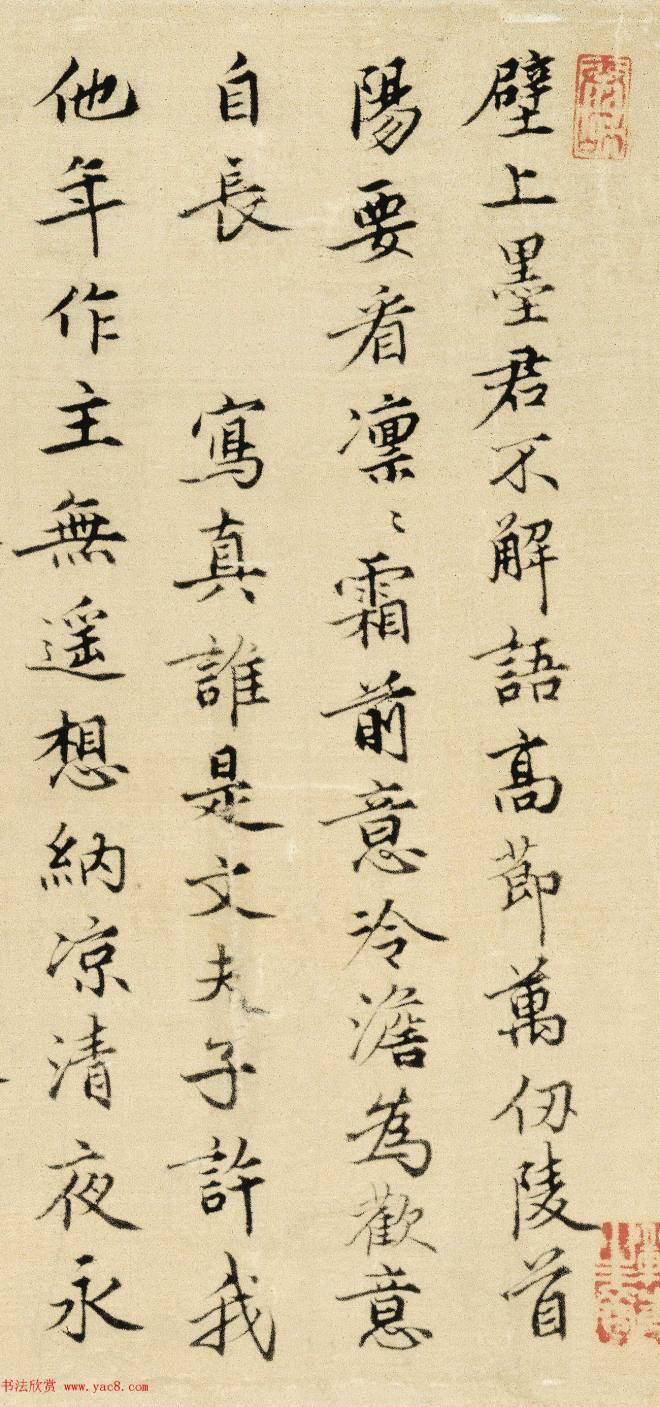 壁上墨君不解語高節萬仞陵首
陽要看凛〻霜前意冷澹為歡意
自長　寫真誰是文夫子許我
他年作主無遥想納凉清夜永
书法欣赏 www.yac8.com